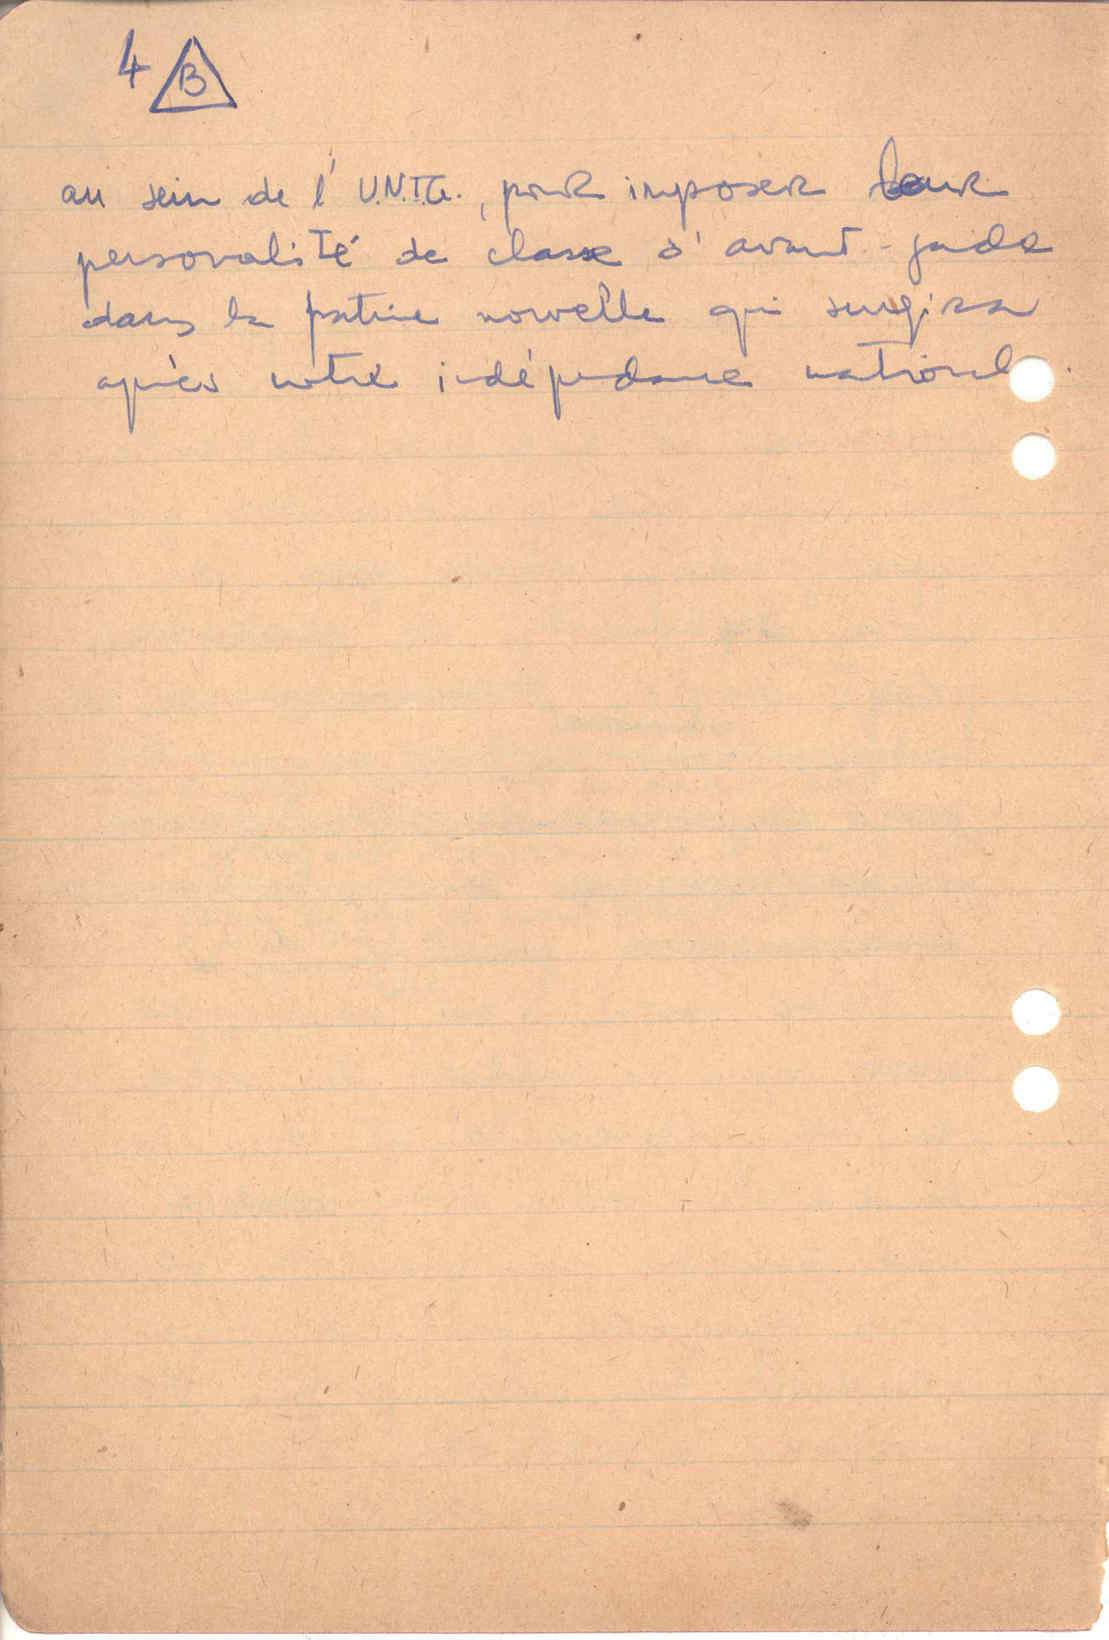 4 B
au sein de l'U.N.T.G., pour imposer leur
personalité de classe d'avant-garde
dans la patrie nouvelle qui surgira
après notre indépendance nationale.